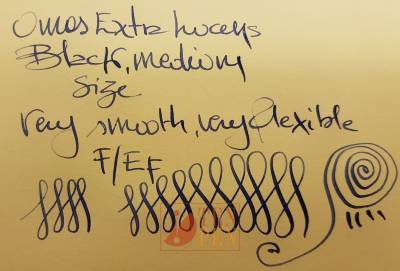 Omas Extra Lucens
Black, medium
Size
Very smooth, very flexible
F/EF
TEN
PEN